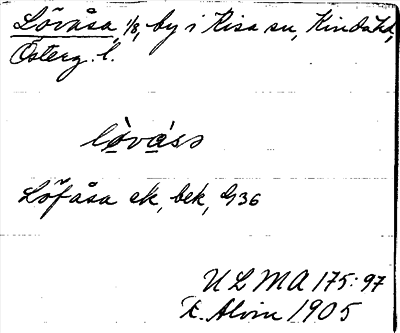 Lövåsa, 1/8, by i Kisa sn, Kinda hd,
Österg. l.
lòvás
Löfåsa ek, bek, G36
ULMA 175:97
E. Alvin 1905